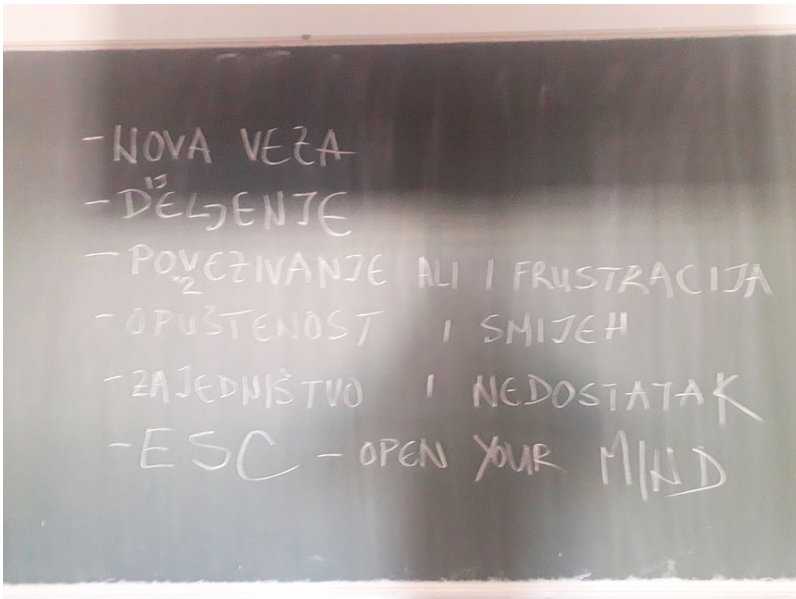 - NOVA VEZA
- DIJELJENJE
- POVEZIVANJE ALI I FRUSTRACIJA
- OPUŠTENOST I SMIJEH
- ZAJEDNIŠTVO I NEDOSTATAK
- ESC - OPEN YOUR MIND